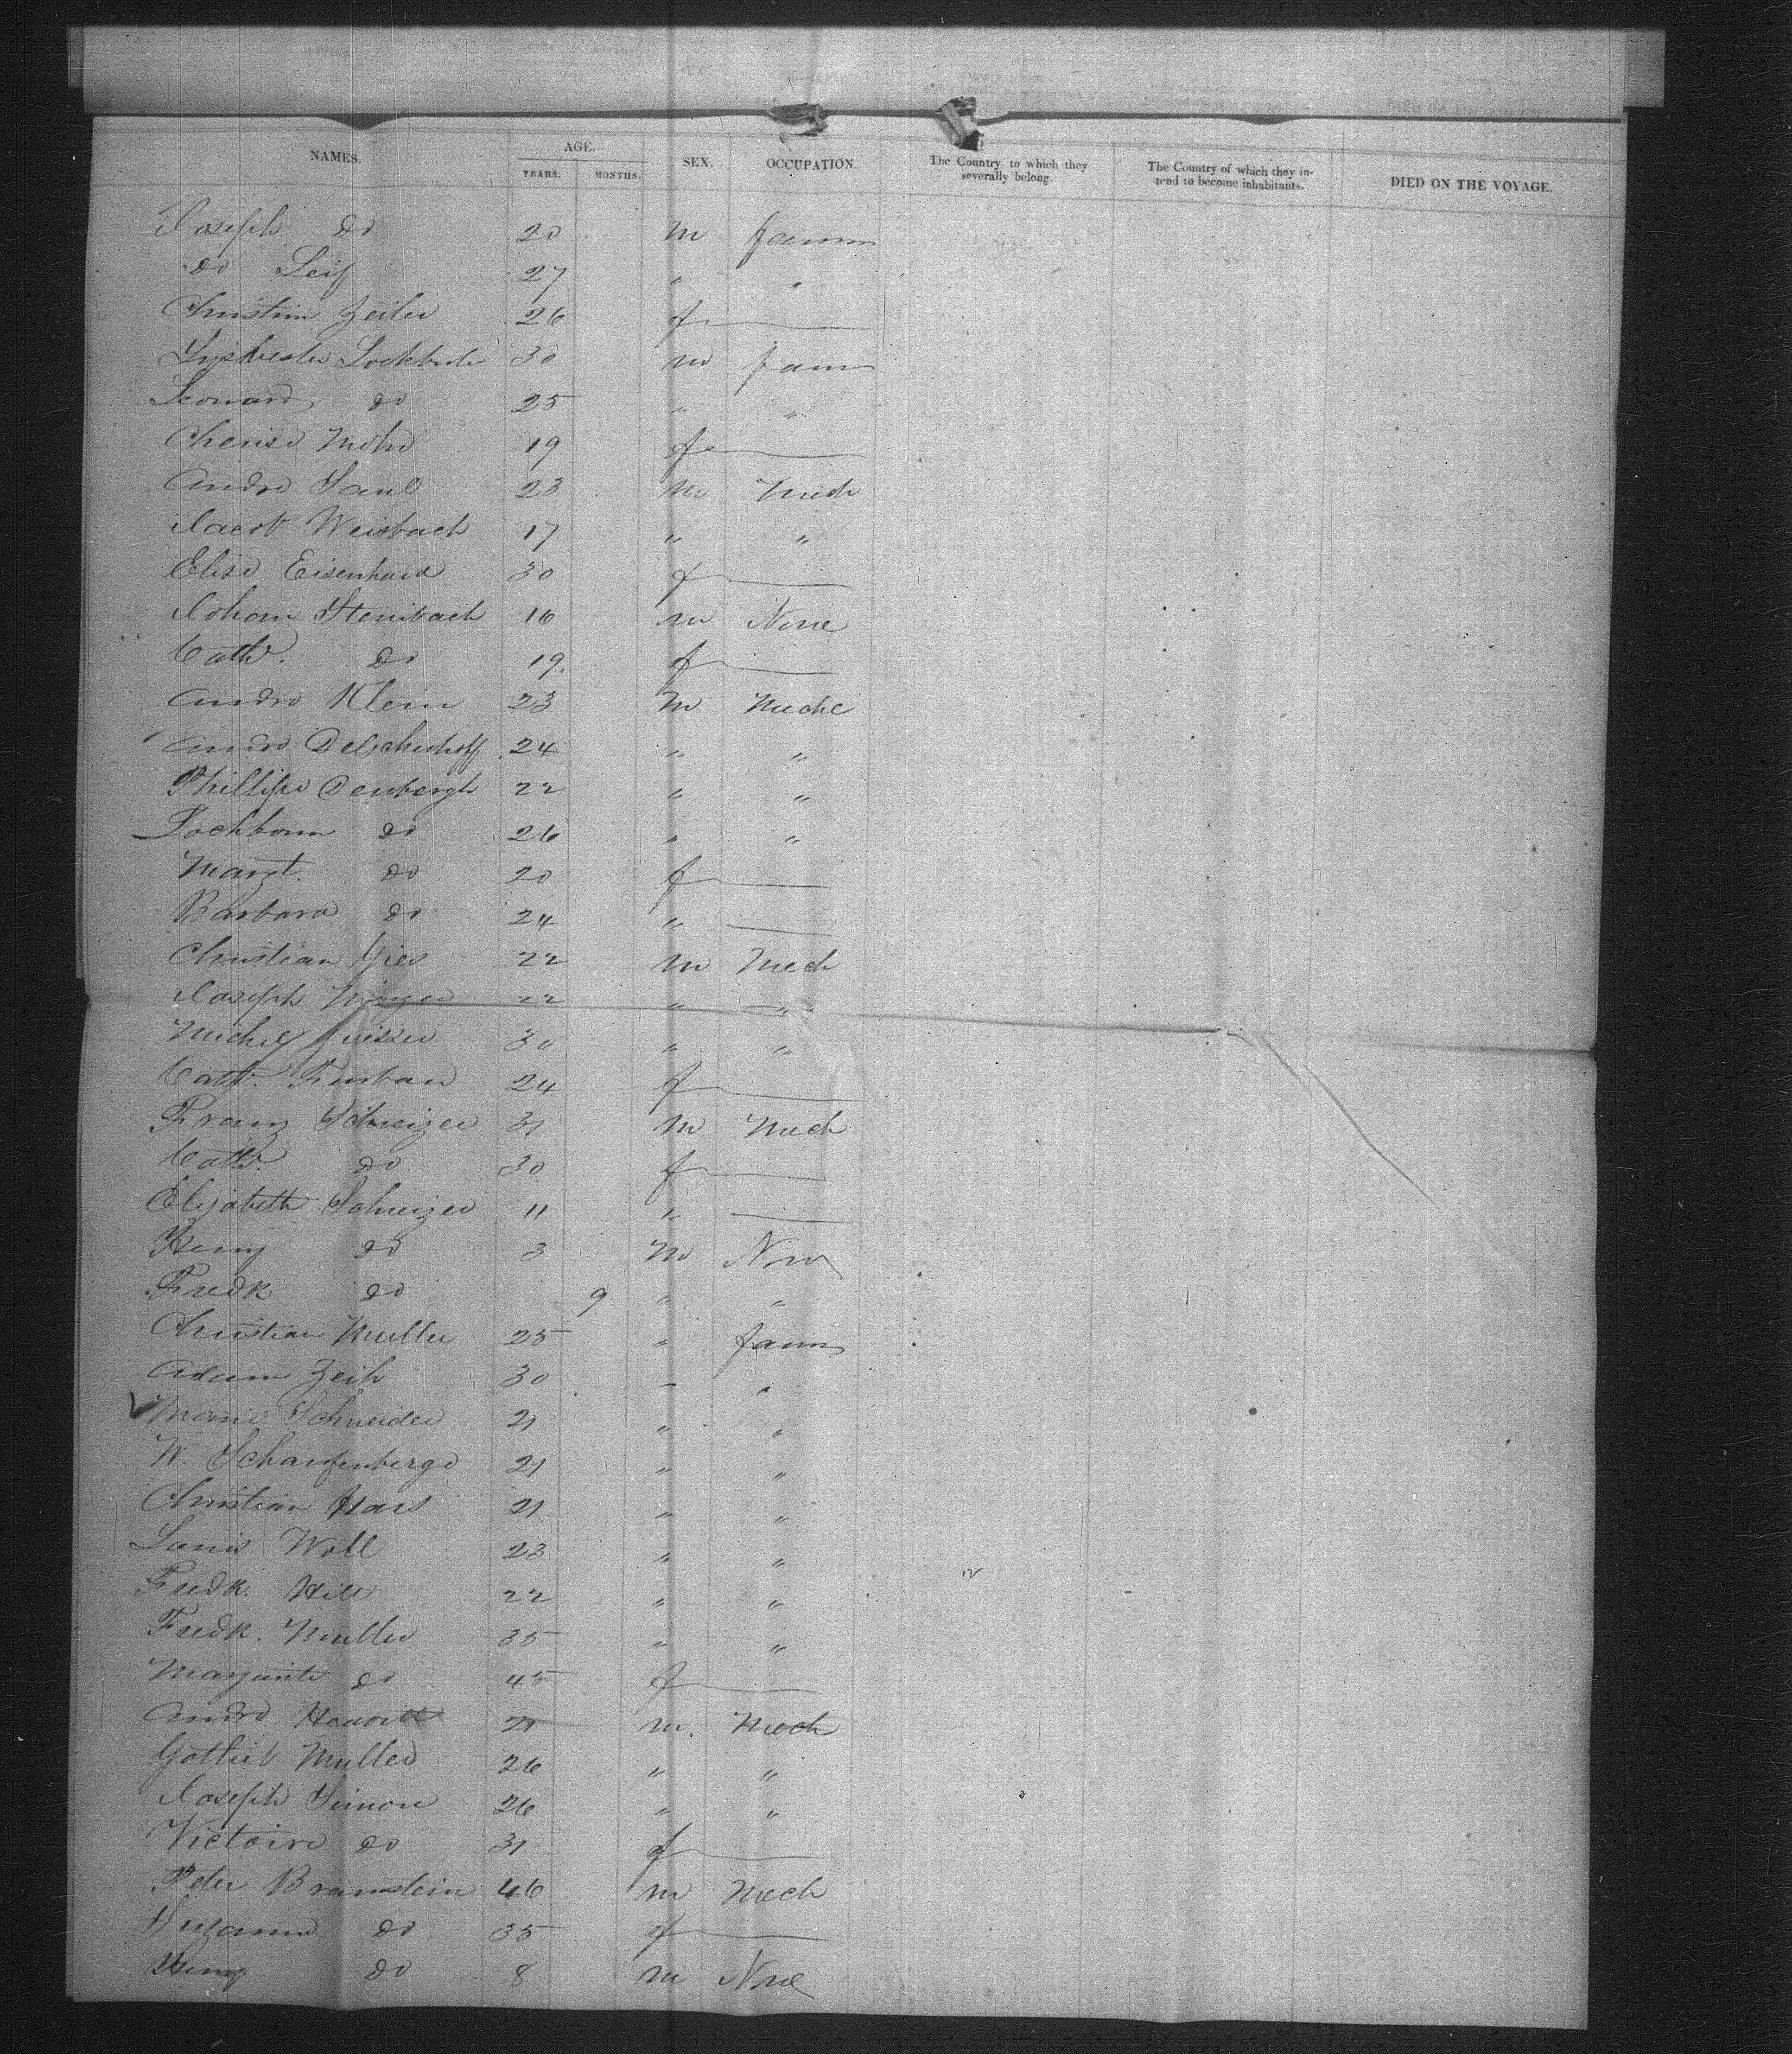 NAMES. AGE. SEX. OCCUPATION. The Country to which they severally belong. The Country of which they intend to become inhabitants. DIED ON THE VOYAGE.
YEARS. MONTHS.
Joseph do 20 m farm
do Seif 27 " "
Christian Zeiler 26 f
30 m farm
Leonard do 25 " "
Mohr 19 fe
Andre Saul 23 m Mech
Jacob Weisbach 17 " "
Elise Eisenhard 30 f
Johann Steinbach 16 m None
Cath. do 19 f
Andre Klein 23 m Mechc
Andre 24 " "
Phillipe 22 " "
do 26 " "
Margt. do 20 f
Barbara do 24 "
Christian Gies 22 m Mech
Joseph 22 " "
Michel 30 " "
Cath. 24 f
Franz Schweizer 31 m Mech
Cath. do 30 f
Elizabeth Schweizer 11 "
Henry do 3 m Non
Fredk do 9 " "
Christian Muller 25 " farm
Adam Zeih 30 " "
Marie Schneider 21 " "
W. Scharfenberge 21 " "
Christian Hars 21 " "
Louis Woll 23 " "
Fredk. Hill 22 " "
Fredk. Muller 35 " "
Margarite do 45 f
Andre 21 m. Mech
Gotlieb Muller 26 " "
Joseph Simon 26 " "
Victoire do 31 f
Peter Bramstein 46 m Mech
Suzanna do 35 f
Henry do 8 m None